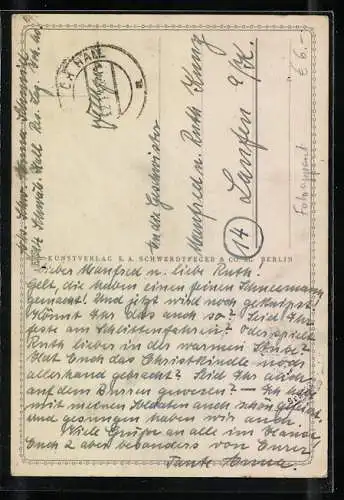 Feldpost
An die Geschwister
Manfred u. Ruth Kunz
Laufen a/K.
14
€ 6.-
KUNSTVERLAG E. A. SCHWERDTFEGER & CO. BERLIN
Lieber Manfred u. liebe Ruth!
Gelt, die haben einen feinen Schneemann
gemacht! Und jetzt wird noch geknipst.
Könnt Ihr das auch so? Seid Ihr
feste am Schlittenfahren? Oder spielt
Ruth lieber in der warmen Stube?
Hat Euch das Christkindle noch
allerhand gebracht? Seid Ihr auch
auf dem gewesen? - Ich
mit meinen Soldaten auch schon
und gesungen haben wir auch.
Viele Grüße an alle im Hause
Euch 2 aber besonders von Eurer
Tante Anna